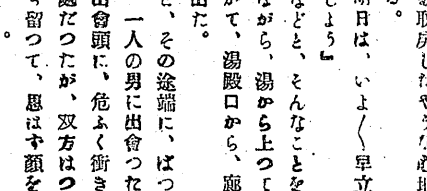 取戻したやうな心地
る。
明日は、いよ〱早立
しよう』
などと、そんなことを
ながら、湯から上つて
がて、湯殿口から、廊
出た。
と、その途端に、ばつ
一人の男に出會つた
出會頭に、危ふく衝き
だつたが、双方はつ
留つて、思はず顔を
。